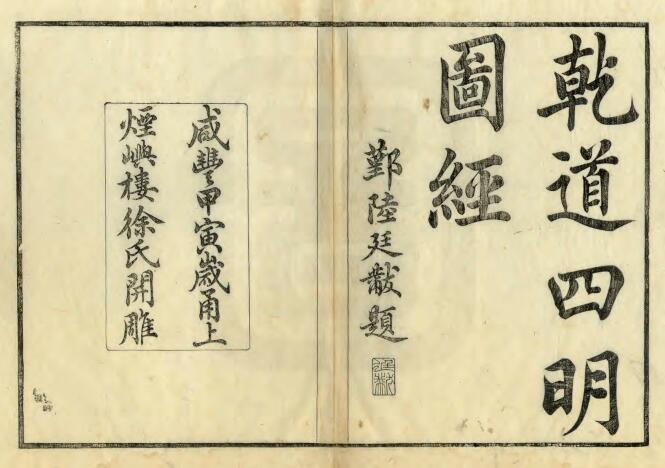 乾道四明
圖經
鄞陸廷黻題
咸豐甲寅歲甬上
煙嶼樓徐氏開雕